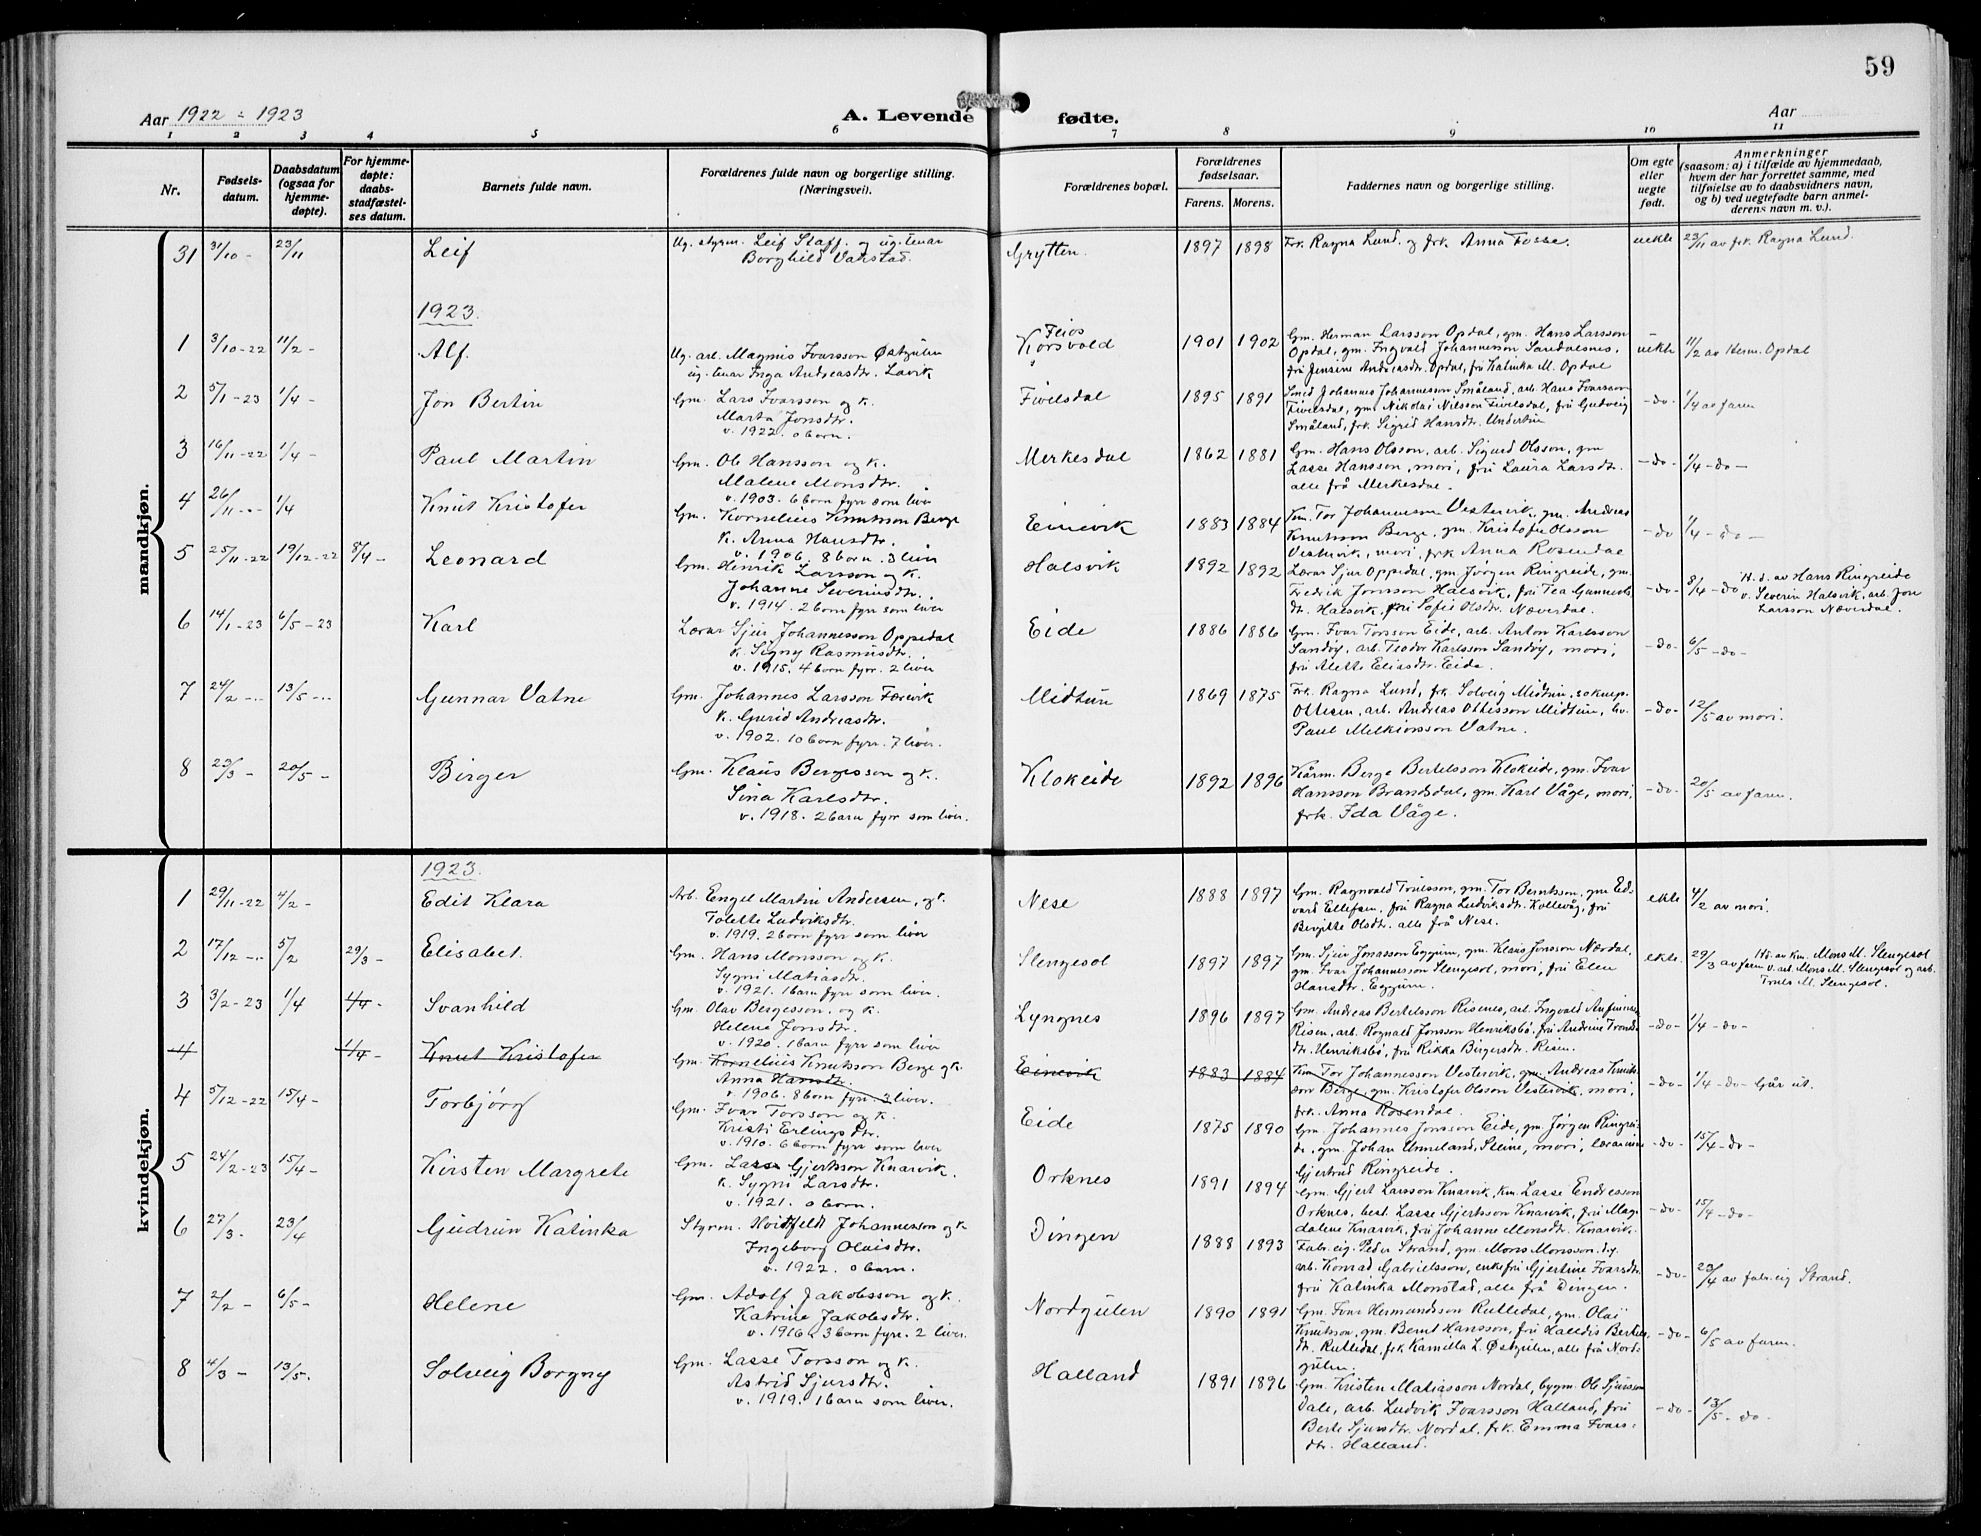 59
Aar 1922 - 1923
A. Levende fødte.
Aar
1 2 3 4 5 6 7 8 9 10 11
Nr.
Fødsels-
datum.
Daabsdatum
(ogsaa for
hjemme-
døpte).
For hjemme-
døpte:
daabs-
stadfæstel-
ses datum.
Barnets fulde navn.
Forældrenes fulde navn og borgerlige stilling.
(Næringsvei).
Forældrenes bopæl.
Forældrenes
fødselsaar.
Farens. Morens.
Faddernes navn og borgerlige stilling.
Om egte
eller
uegte
født.
Anmerkninger
(saasom: a) i tilfælde av hjemmedaab,
hvem der har forrettet samme, med
tilføielse av to daabsvidners navn,
og b) ved uegtefødte barn anmel-
derens navn m. v.).
mandkjøn.
31 31/10 - 23/11 Leif
Ug. styrm. Leif Staff. og ug. tenar
Borghild Vatstad.
Grytten. 1897 1898
Frk. Ragna Lund og frk. Anna Fosse.
uekte 23/11 av frk. Ragna Lund.
1923.
1 3/10-22 11/2 - Alf.
Ug. arb. Magnus Ivarsson Østgulen
ug. tenar Inga Andreasdtr. Lavik
Korsvold 1901 1902
Gm. Herman Larsson Opdal, gm. Hans Larsson
Opdal, gm. Ingvald Johannesson Sandalsnes,
fru Jensine Andreasdtr. Opdal, fru Katinka M. Opdal
uekte 11/2 av Herm. Opdal
2 5/1-23 1/4 - Jon Bertin
Gm. Lars Ivarsson og k.
Marta Jonsdtr.
v. 1922. 0 born.
Fivelsdal 1895 1891
Smed Johannes Johannesson Småland, arb. Hans Ivarsson
Fivelsdal, gm. Nikolai Nilsson Fivelsdal, fru Gudveig
Småland, frk. Sigrid Hansdtr. Undertun
-do- 1/4 av faren
3 16/11-22 1/4 - Paul Martin
Gm. Ole Hansson og k.
Malene Monsdtr.
v. 1903. 6 born fyrr som liver
Merkesdal 1862 1881
Gm. Hans Olsson, arb. Sigurd Olsson, gm
Lasse Hansson, mori, fru Laura Larsdtr.
alle frå Merkesdal.
-do- 1/4 -do-
4 26/11 - 1/4 Knut Kristofer
Gm. Kornelius Knutsson Berge
k. Anna Hansdtr.
v. 1906. 8 born. 3 liver
Einevik 1883 1884
Km. Tor Johannesson Vestervik, gm. Andreas
Knutsson Berge, gm. Kristofer Olsson
Vestervik, mori, frk Anna Rosendal
-do 1/4 -do-
5 25/11-22 19/12-22 8/4 - Leonard
Gm. Henrik Larsson og k.
Johanne Severinsdtr.
v. 1914. 2 born fyrr som liver
Halsvik 1892 1892
Lærar Sjur Oppedal, gm. Jørgen Ringreide, gm.
Fredrik Jonsson Halsvik, fru Tea Gunners-
dtr. Halsvik, fru Sofie Olsdtr. Næverdal.
-do- 8/4 -do H. d. av Hans Ringreide
v. Severin Halsvik, arb. Jon
Larsson Næverdal.
6 14/1-23 6/5-23 Karl
Lærar Sjur Johannesson Oppedal
k. Signy Rasmusdtr.
v. 1915. 4 born fyrr. 2 liver
Eide 1886 1886
Gm. Ivar Torsson Eide, arb. Anton Karlsson
Sandøy, arb. Teodor Karlsson Sandøy, mori,
fru Alette Eliasdtr. Eide.
-do- 6/5 -do-
7 24/2 - 13/5 - Gunnar Vatne
Gm. Johannes Larsson Færevik
k. Gurid Andreasdtr.
v. 1902. 10 born fyrr. 7 liver.
Midtun 1869 1875
Frk. Ragna Lund, frk. Solveig Midtun,
Ottesen, arb. Andreas Ottesson Midtun,
Paul Melkiorsson Vatne.
-do- 12/5 av mori.
8 23/3 - 20/5 - Birger
Gm. Klaus Bergesson og k.
Sina Karlsdtr.
v. 1918. 2 barn fyrr som liver.
Klokeide 1892 1896
Kårm. Berge Bertelsson Klokeide, gm. Ivar
Hansson Brandsdal, gm. Karl Våge, mori,
frk. Ida Våge.
-do- 20/5 av faren.
kvindekjøn.
1923.
1 29/11-22 4/2 - Edit Klara
Arb. Engel Martin Andersen, og k.
Tolette Ludviksdtr.
v. 1919. 2 born fyrr som liver
Nese 1888 1897
Gm. Ragnvald Trulsson, gm. Tor Berntsson, gm Ed-
vard Ellefsen, fru Ragna Ludviksdtr. Kollevåg, fru
Birgitte Olsdtr. alle frå Nese.
ekte 4/2 av mori.
2 17/12 - 5/2 29/3 - Elisabet.
Gm. Hans Monsson og k.
Sygni Matiasdtr.
v. 1921. 1 barn fyrr som liver.
Slengesol 1897 1897
Gm. Sjur Jonasson Eggum, gm. Klaus Jonsson Nærdal,
gm. Ivar Johannesson Slengesol, mori, fru Elen
Hansdtr. Eggum.
ekte. 29/3 av faren Hd. av km. Mons M. Slengesol
v. arb. Mons M. Slengesol og arb.
Truls M. Slengesol.
3 3/2-23 1/4 1/4 - Svanhild
Gm. Olav Bergesson. og k.
Helene Jonsdtr.
v. 1920. 1 barn fyrr som liver
Lyngnes 1896 1897
Gm. Andreas Bertelsson Risenes, arb. Ingvald Anfinnss.
Risen, arb. Rognald Jonsson Henriksbø, fru Andrine Tronds-
dtr. Henriksbø, fru Rikka Birgersdtr. Risen.
-do- 1/4 -do-
4 1/4 - Knut Kristofer
Gm. Kornelius Knutsson Berge og k.
Anna Hansdtr.
v. 1906. 8 born fyrr 3 liver.
Einevik 1883 1884
Km Tor Johannesson Vestervik, gm. Andreas Knuts-
son Berge, gm. Kristofer Olsson Vestervik, mori,
frk. Anna Rosendal.
-do- 1/4 -do- Går ut.
4 5/12-22 15/4 - Torbjørg
Gm. Ivar Torsson og k.
Kristi Erlingsdtr.
v. 1910. 6 born fyrr som liver
Eide 1875 1890
Gm. Johannes Jonsson Eide, gm. Jørgen Ringrei-
de, gm. Johan Unneland, Steine, mori, lærarinne
Gjertrud Ringreide.
-do- 15/4 -do-
5 24/2-23 15/4 - Kirsten Margrete
Gm. Lasse Gjertsson Knarvik.
k. Sygni Larsdtr.
v. 1921. 0 born.
Orknes 1891 1894
Gm. Gjert Larsson Knarvik, km. Lasse Endresson
Orknes, best. Lasse Gjertsson Knarvik, fru Mag-
dalene Knarvik, fru Johanne Monsdtr. Knarvik.
-do- 15/4 -do-
6 27/3 - 23/4 Gudrun Katinka
Styrm. Hvitfeldt Johannesson og k
Ingeborg Olaisdtr.
v. 1922. 0 barn.
Dingen 1888 1893
Fabr. eig. Peder Strand, gm. Mons Monsson.
arb. Konrad Gabrielsson, enkefru Gjertine Ivarsdtr.
fru Katinka Monstad, alle frå Dingen.
-do- 23/4 av fabr. eig Strand.
7 2/2 - 6/5 - Helene
Gm. Adolf Jakobsson og k.
Katrine Jakobsdtr.
v. 1916. 3 born fyrr. 2 liver.
Nordgulen 1890 1891
Gm. Ivar Hermundsson Rutledal, gm. Olai
Knutsson, gm. Bernt Hansson, fru Halldis Bertels-
dtr. Rutledal, frk Kamilla L. Østgulen, alle frå Nord-
gulen.
-do- 6/5 av faren.
8 4/3 - 13/5. Solveig Borgny
Gm. Lasse Torsson og k.
Astrid Sjursdtr.
v. 1919. 1 barn som liver.
Halland 1891 1896
Gm. Kristen Matiasson Nordal, bygm. Ole Sjursson
Dale, arb. Ludvik Ivarsson Halland, fru
Berte Sjursdtr. Nordal, frk. Emma Ivars-
dtr. Halland.
-do- 13/5 -do-